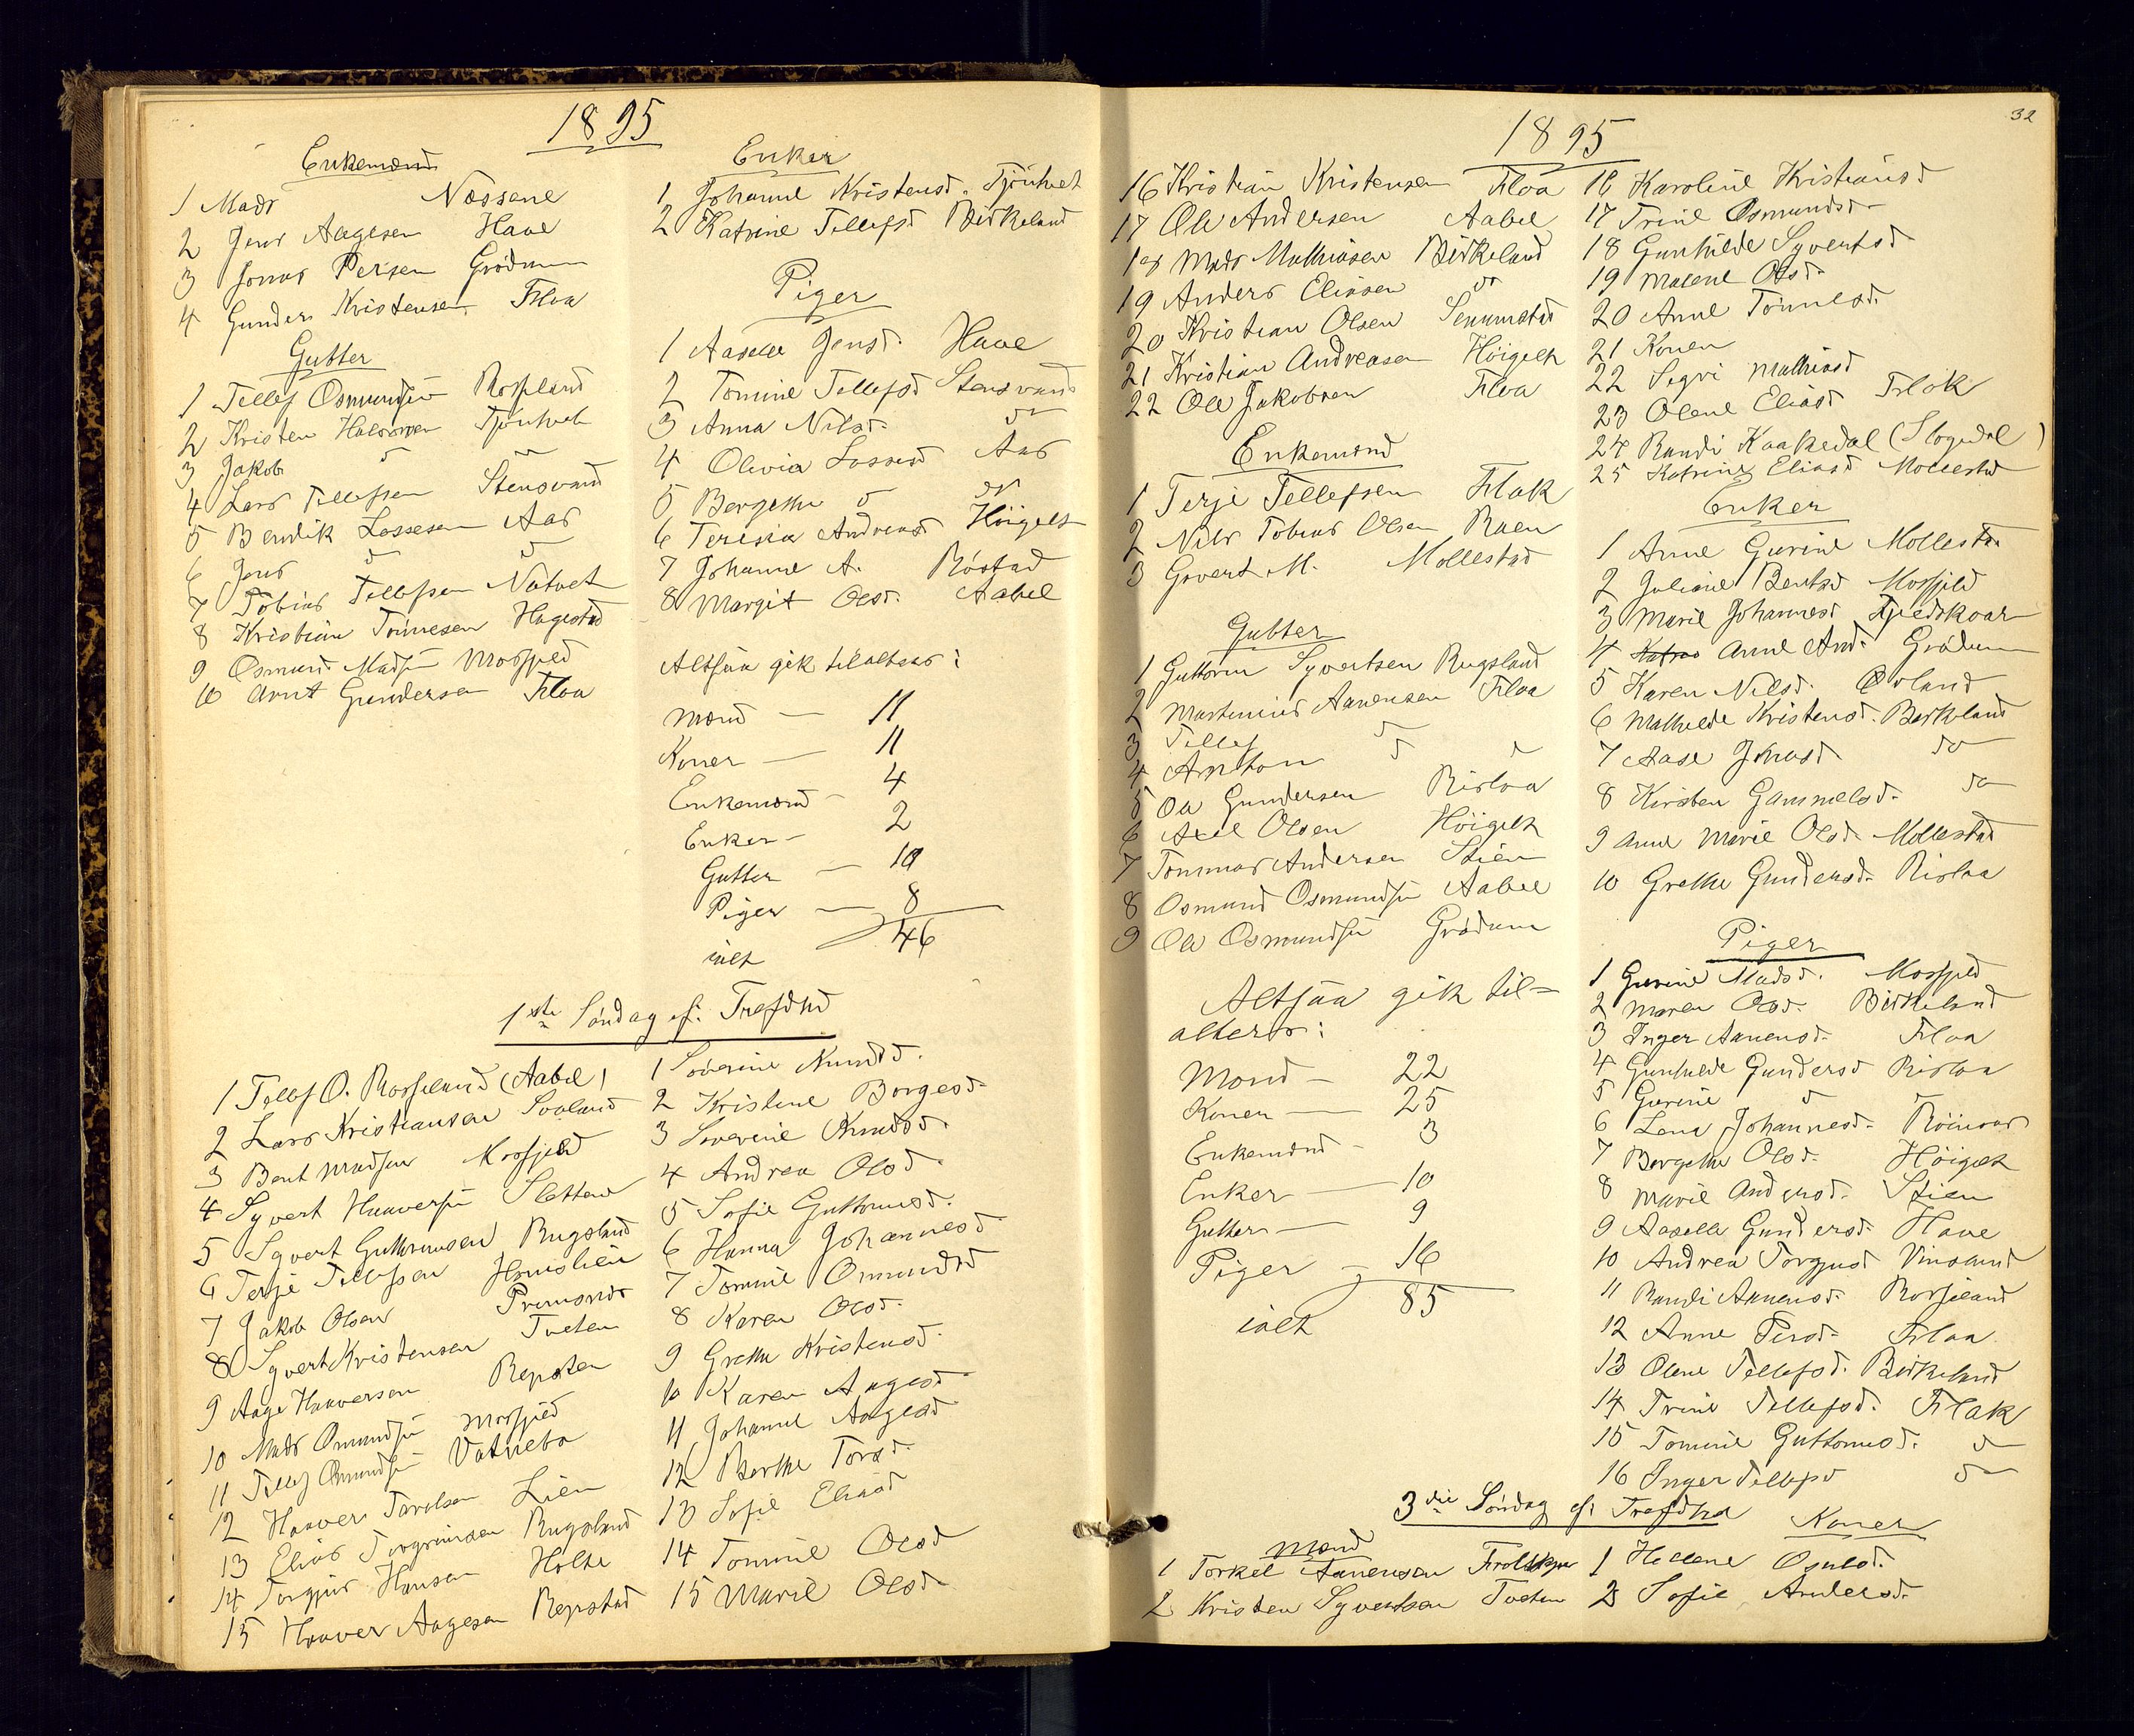 1895
Enkemænd
1 Mads Næssene
2 Jens Aagesen Haae
3 Jonas Persen Grødum
4 Gunder Kristensen Floa
Gutter
1 Tellef Osmundsen Rosseland
2 Kristen Halvorsen Tjönhvet
3 Jakob do do
4 Lars Tellefsen Stensvand
5 Bendik Lassesen Aas
6 Jens do do
7 Tobias Tellefsen Natvet
8 Kristian Tönnesen Hagestad
9 Osmund Madsen Mosfjeld
10 Arnt Gundersen Floa
Enker
1 Johanne Kristensd. Tjönhvet
2 Katrine Tellefsd Birkeland
Piger
1 Aaselle Jensd. Haae
2 Tomine Tellefsd Stensvand
3 Anna Nilsd. do
4 Olivia Lassesd Aas
5 Bergethe do do
6 Teresia Andreasd Höigelt
7 Johanne A. Röstad
8 Margit Olsd. Aabel
Altsaa gik tilalters:
Mænd — 11
Koner — 11
Enkemænd — 4
Enker — 2
Gutter — 10
Piger — 8
ialt 46
1ste Söndag ef. Trefdhd
1 Tellef O. Rosseland (Aabel)
2 Lars Kristiansen Soland
3 Bent Madsen Mosfjeld
4 Syvert Haaversen Sletten
5 Syvert Guttormsen Rugsland
6 Terje Tellefsen
7 Jakob Olsen
8 Syvert Kristensen Tveten
9 Aage Haaversen Repsten
10 Mads Omundsen Mosfjeld
11 Tellef Omundsen Vatnebo
12 Haaver Taralsen Lien
13 Elias Torgrimsen Rugsland
14 Torgjus Hansen Holte
15 Haaver Aagesen Repstad
1 Söverine Knudsd.
2 Kristine Borgesd
3 Severine Knudsd.
4 Andrea Olsd.
5 Sofie Guttormsd.
6 Hanna Johannesd
7 Tomine Omundsd
8 Karen Olsd.
9 Grethe Kristensd.
10 Karen Aagesd.
11 Johanne Aagesd
12 Berthe Torsd.
13 Sofie Eliasd
14 Tomine Olsd
15 Marie Olsd.
32
1895
16 Kristian Kristensen Floa
17 Ole Andersen Aabel
18 Mads Mathiasen Birkeland
19 Anders Eliasen do
20 Kristian Olsen Senumstad
21 Kristian Andreasen Höigelt
22 Ole Jakobsen Floa
Enkemænd
1 Terje Tellefsen Flak
2 Nils Tobias Olsen Raen
3 Govert M. Mollestad
Gutter
1 Guttorm Syvertsen Rugsland
2 Martinius Aanensen Floa
3 Tellef do
4 Anton do do
5 Ole Gundersen Risloa
6 Axel Olsen Höigelt
7 Tommas Andersen Stien
8 Osmund Osmundsen Aabel
9 Ole Osmundsen Grødum
Altsaa gik til-
alters:
Mænd — 22
Koner — 25
Enkemænd — 3
Enker — 10
Gutter — 9
Piger — 16
ialt 85
16 Karoline Kristiansd
17 Trine Osmundsd
18 Gunhilde Syvertsd
19 Malene Olsd.
20 Anne Tönnesd.
21 Konen
22 Segri Mathiasd
23 Olene Eliasd Flak
24 Randi Kaakedal (Slogedal)
25 Katrine Eliasd Mollestad
Enker
1 Anne Gurine Mollestad
2 Juliane Bentsd Mosfjeld
3 Marie Johannesd
4 Anne And. Grødum
5 Karen Nilsd.
6 Mathilde Kristensd. Birkeland
7 Aase Johnsd do
8 Kirsten Gammelsd. do
9 Anne Marie Olsd. Mollestad
10 Grethe Gundersd. Risloa
Piger
1 Gurine Madsd. Mosfjeld
2 Maren Olsd. Birkeland
3 Inger Aanensd. Floa
4 Gunhilde Gundersd Risloa
5 Gurine do do
6 Lena Johannesd.
7 Bergethe Olsd. Höigelt
8 Marie Andersd. Stien
9 Aaselle Gundersd. Haae
10 Andrea Torgjusd Vinsland
11 Randi Aanensd. Rosseland
12 Anne Persd. Floa
13 Olene Tellefsd. Birkeland
14 Trine Tellefsd. Flak
15 Tomine Guttormsd. do
16 Inger Tellefsd do
3die Söndag ef. Trefdhd
Mænd
1 Torkel Aanensen
2 Kristen Syvertsen Tveten
Koner
1 Hellene Osulsd.
2 Sofie Andersd.